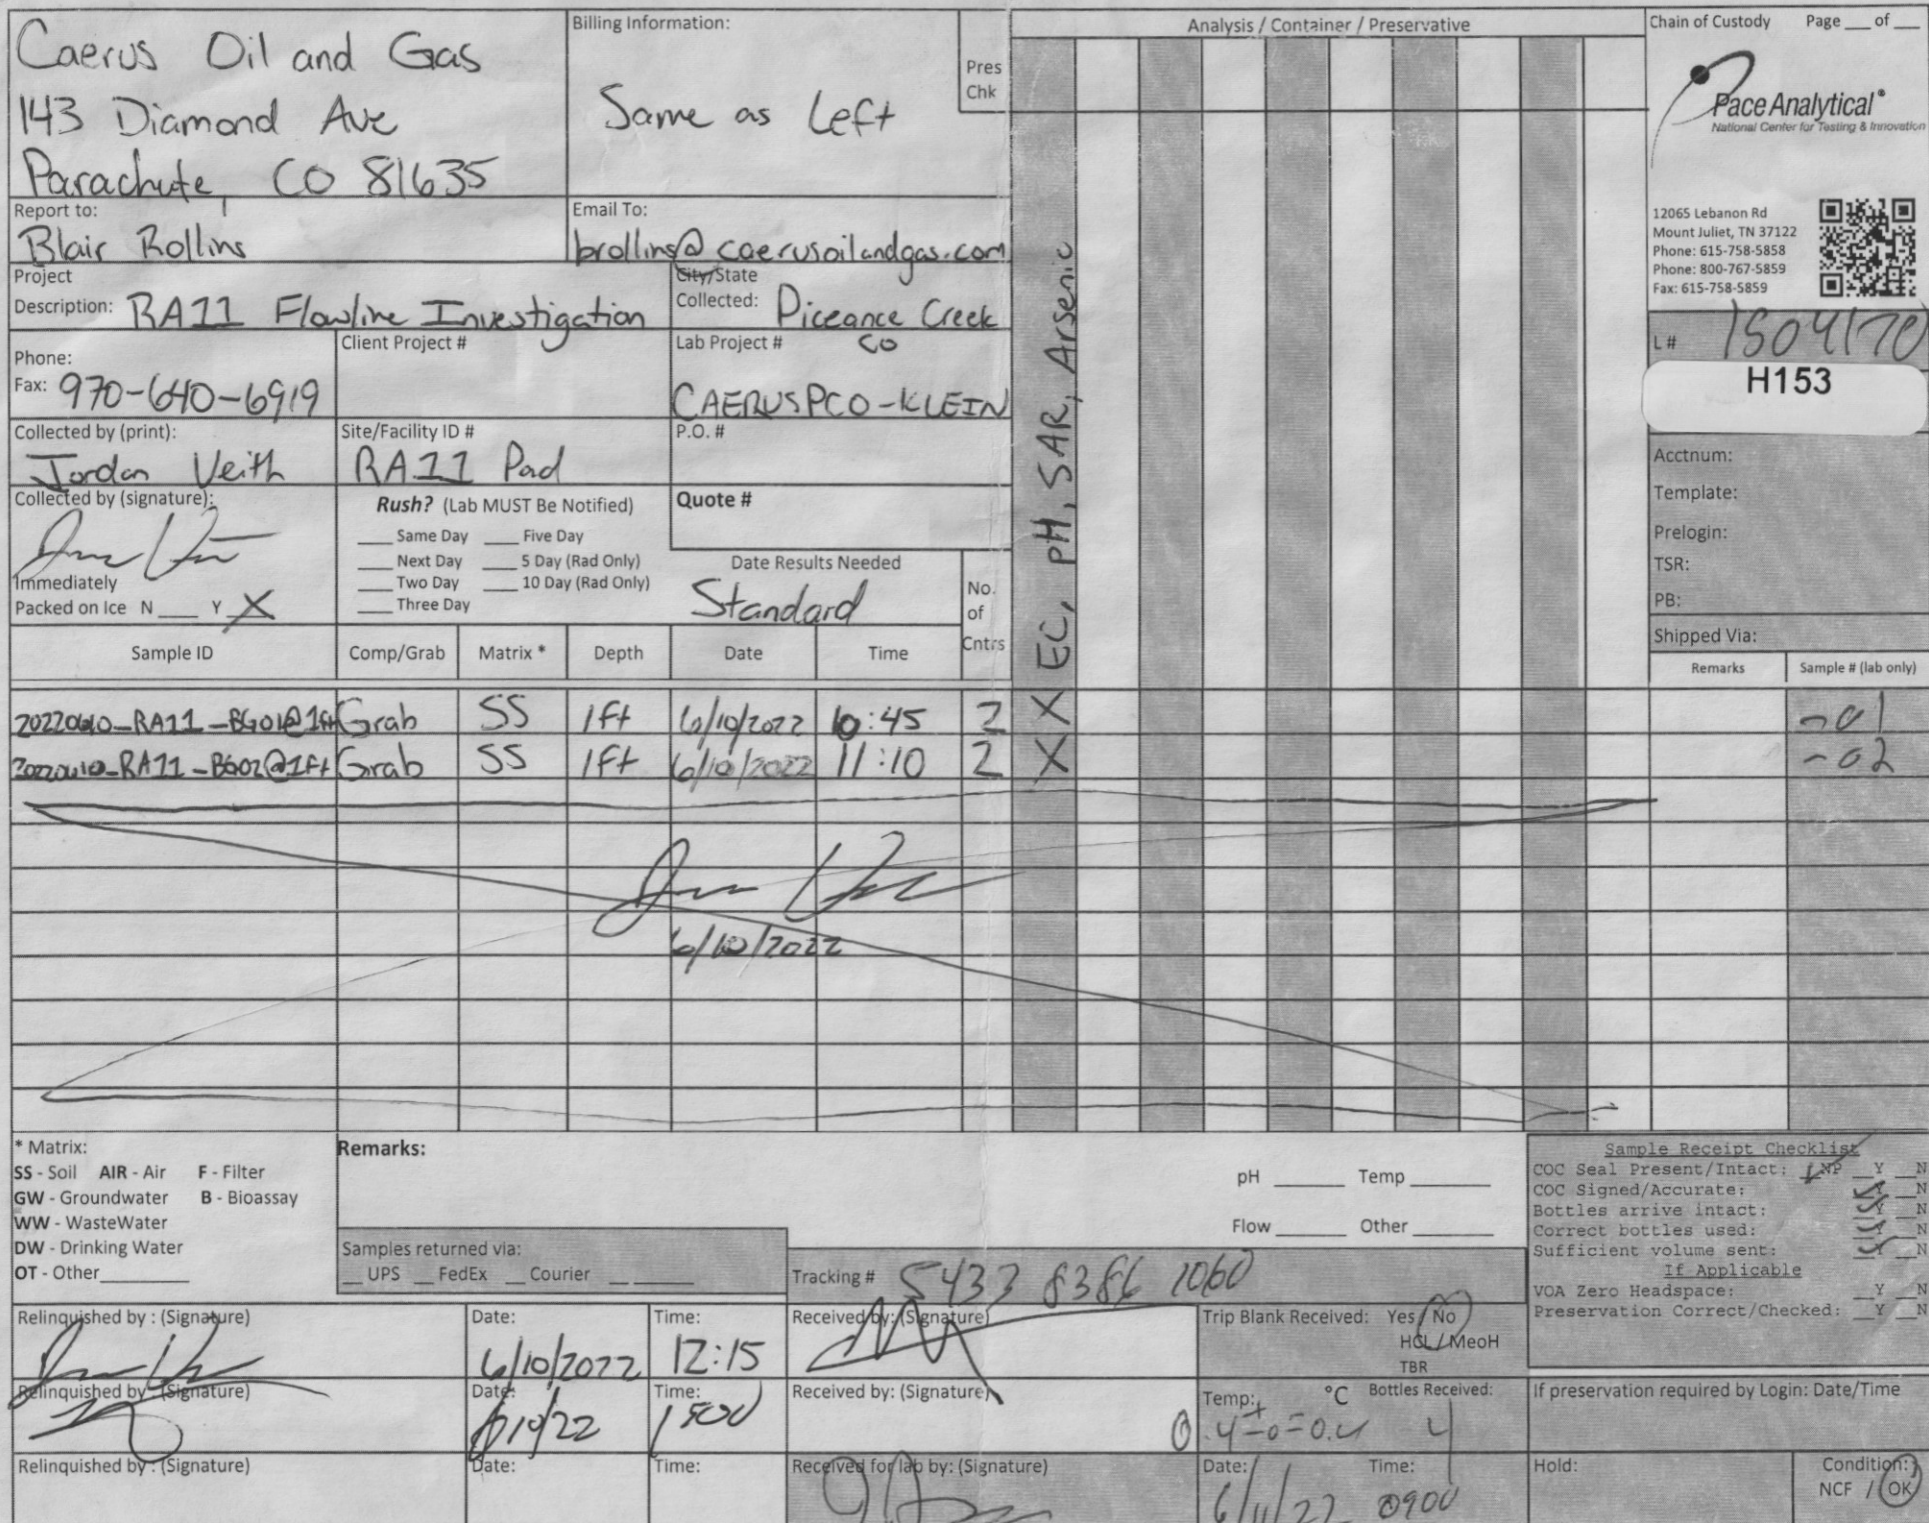 Caerus Oil and Gas
143 Diamond Ave
Parachute, CO 81635
Billing Information:
Same as Left
Pres
Chk
Analysis / Container / Preservative
Chain of Custody Page ___ of ___
Pace Analytical®
National Center for Testing & Innovation
12065 Lebanon Rd
Mount Juliet, TN 37122
Phone: 615-758-5858
Phone: 800-767-5859
Fax: 615-758-5859
Report to:
Blair Rollins
Email To:
brollins@caerusoilandgas.com
Project
Description: RA11 Flowline Investigation
City/State
Collected: Piceance Creek
CO
Phone:
Fax: 970-640-6919
Client Project #
Lab Project #
CAERUSPCO-KLEIN
L# 1504170
H153
Collected by (print):
Jordan Veith
Site/Facility ID #
RA11 Pad
P.O. #
Collected by (signature):
Rush? (Lab MUST Be Notified)
___ Same Day ___ Five Day
___ Next Day ___ 5 Day (Rad Only)
___ Two Day ___ 10 Day (Rad Only)
___ Three Day
Quote #
Date Results Needed
Standard
Immediately
Packed on Ice N ___ Y X
No.
of
Cntrs
EC, pH, SAR, Arsenic
Acctnum:
Template:
Prelogin:
TSR:
PB:
Shipped Via:
Sample ID Comp/Grab Matrix * Depth Date Time Remarks Sample # (lab only)
20220610_RA11_BG01@1ft Grab SS 1ft 6/10/2022 10:45 2 X -01
20220610_RA11_BG02@1ft Grab SS 1ft 6/10/2022 11:10 2 X -02
6/10/2022
* Matrix:
SS - Soil AIR - Air F - Filter
GW - Groundwater B - Bioassay
WW - WasteWater
DW - Drinking Water
OT - Other________
Remarks:
pH ______ Temp ______
Flow ______ Other ______
Samples returned via:
__ UPS __ FedEx __ Courier __ ______
Tracking # 5433 8386 1060
Sample Receipt Checklist
COC Seal Present/Intact: NP __Y __N
COC Signed/Accurate: Y __N
Bottles arrive intact: Y __N
Correct bottles used: Y __N
Sufficient volume sent: Y __N
If Applicable
VOA Zero Headspace: __Y __N
Preservation Correct/Checked: __Y __N
Relinquished by : (Signature)
Date:
6/10/2022
Time:
12:15
Received by: (Signature)
Trip Blank Received: Yes / No
HCL / MeoH
TBR
Relinquished by : (Signature)
Date:
6/10/22
Time:
1500
Received by: (Signature)
Temp: °C Bottles Received:
0.4±0=0.4 4
If preservation required by Login: Date/Time
Relinquished by : (Signature)
Date:
Time:
Received for lab by: (Signature)
Date:
6/11/22
Time:
0900
Hold:
Condition:
NCF / OK